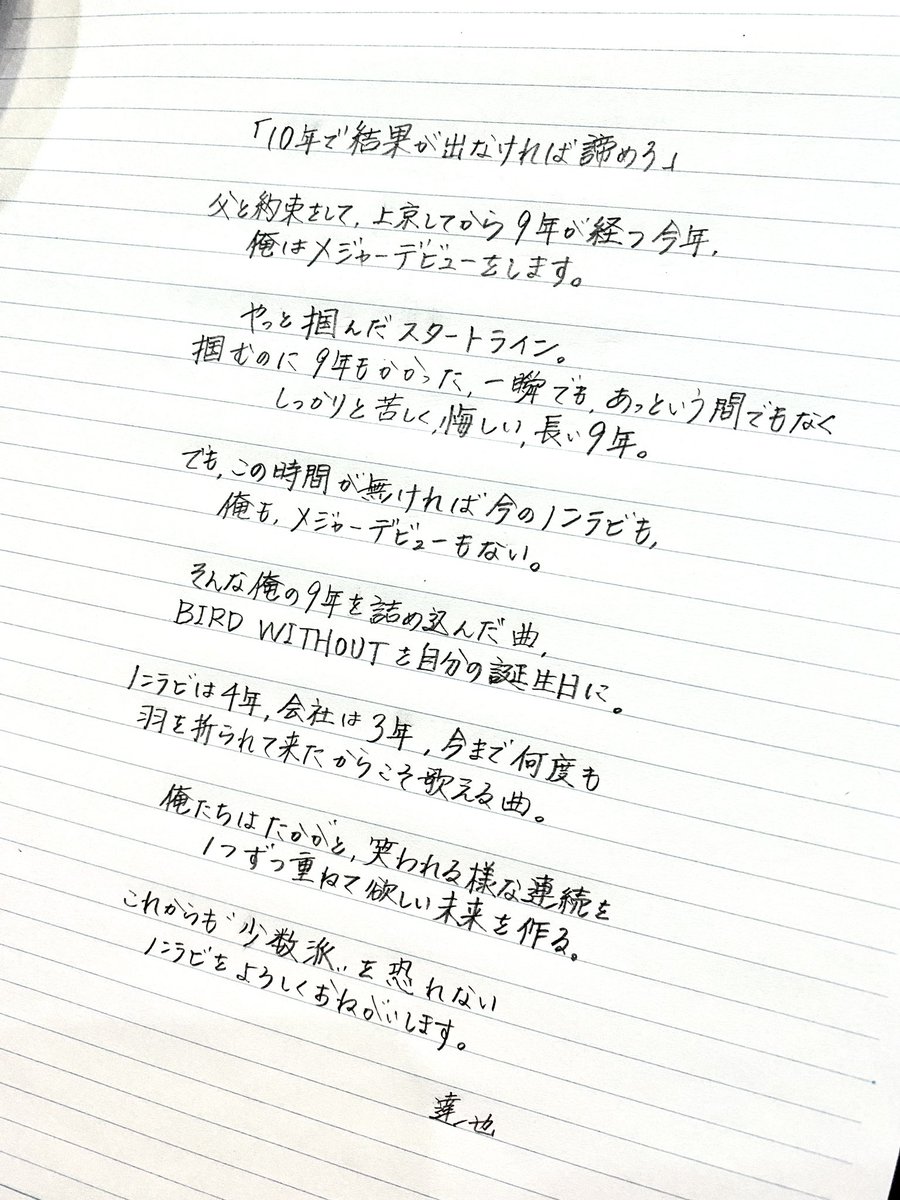 「10年で結果が出なければ諦めろ」
父と約束をして、上京してから9年が経つ今年、
俺はメジャーデビューをします。
やっと掴んだスタートライン。
掴むのに9年もかかった、一瞬でも、あっという間でもなく
しっかりと苦しく、悔しい、長い9年。
でも、この時間が無ければ今のノンラビも、
俺も、メジャーデビューもない。
そんな俺の9年を詰め込んだ曲、
BIRD WITHOUTを自分の誕生日に。
ノンラビは4年、会社は3年、今まで何度も
羽を折られて来たからこそ歌える曲。
俺たちはたかがと、笑われる様な連続を
1つずつ重ねて欲しい未来を作る。
これからも"少数派"を恐れない
ノンラビをよろしくおねがいします。
達也